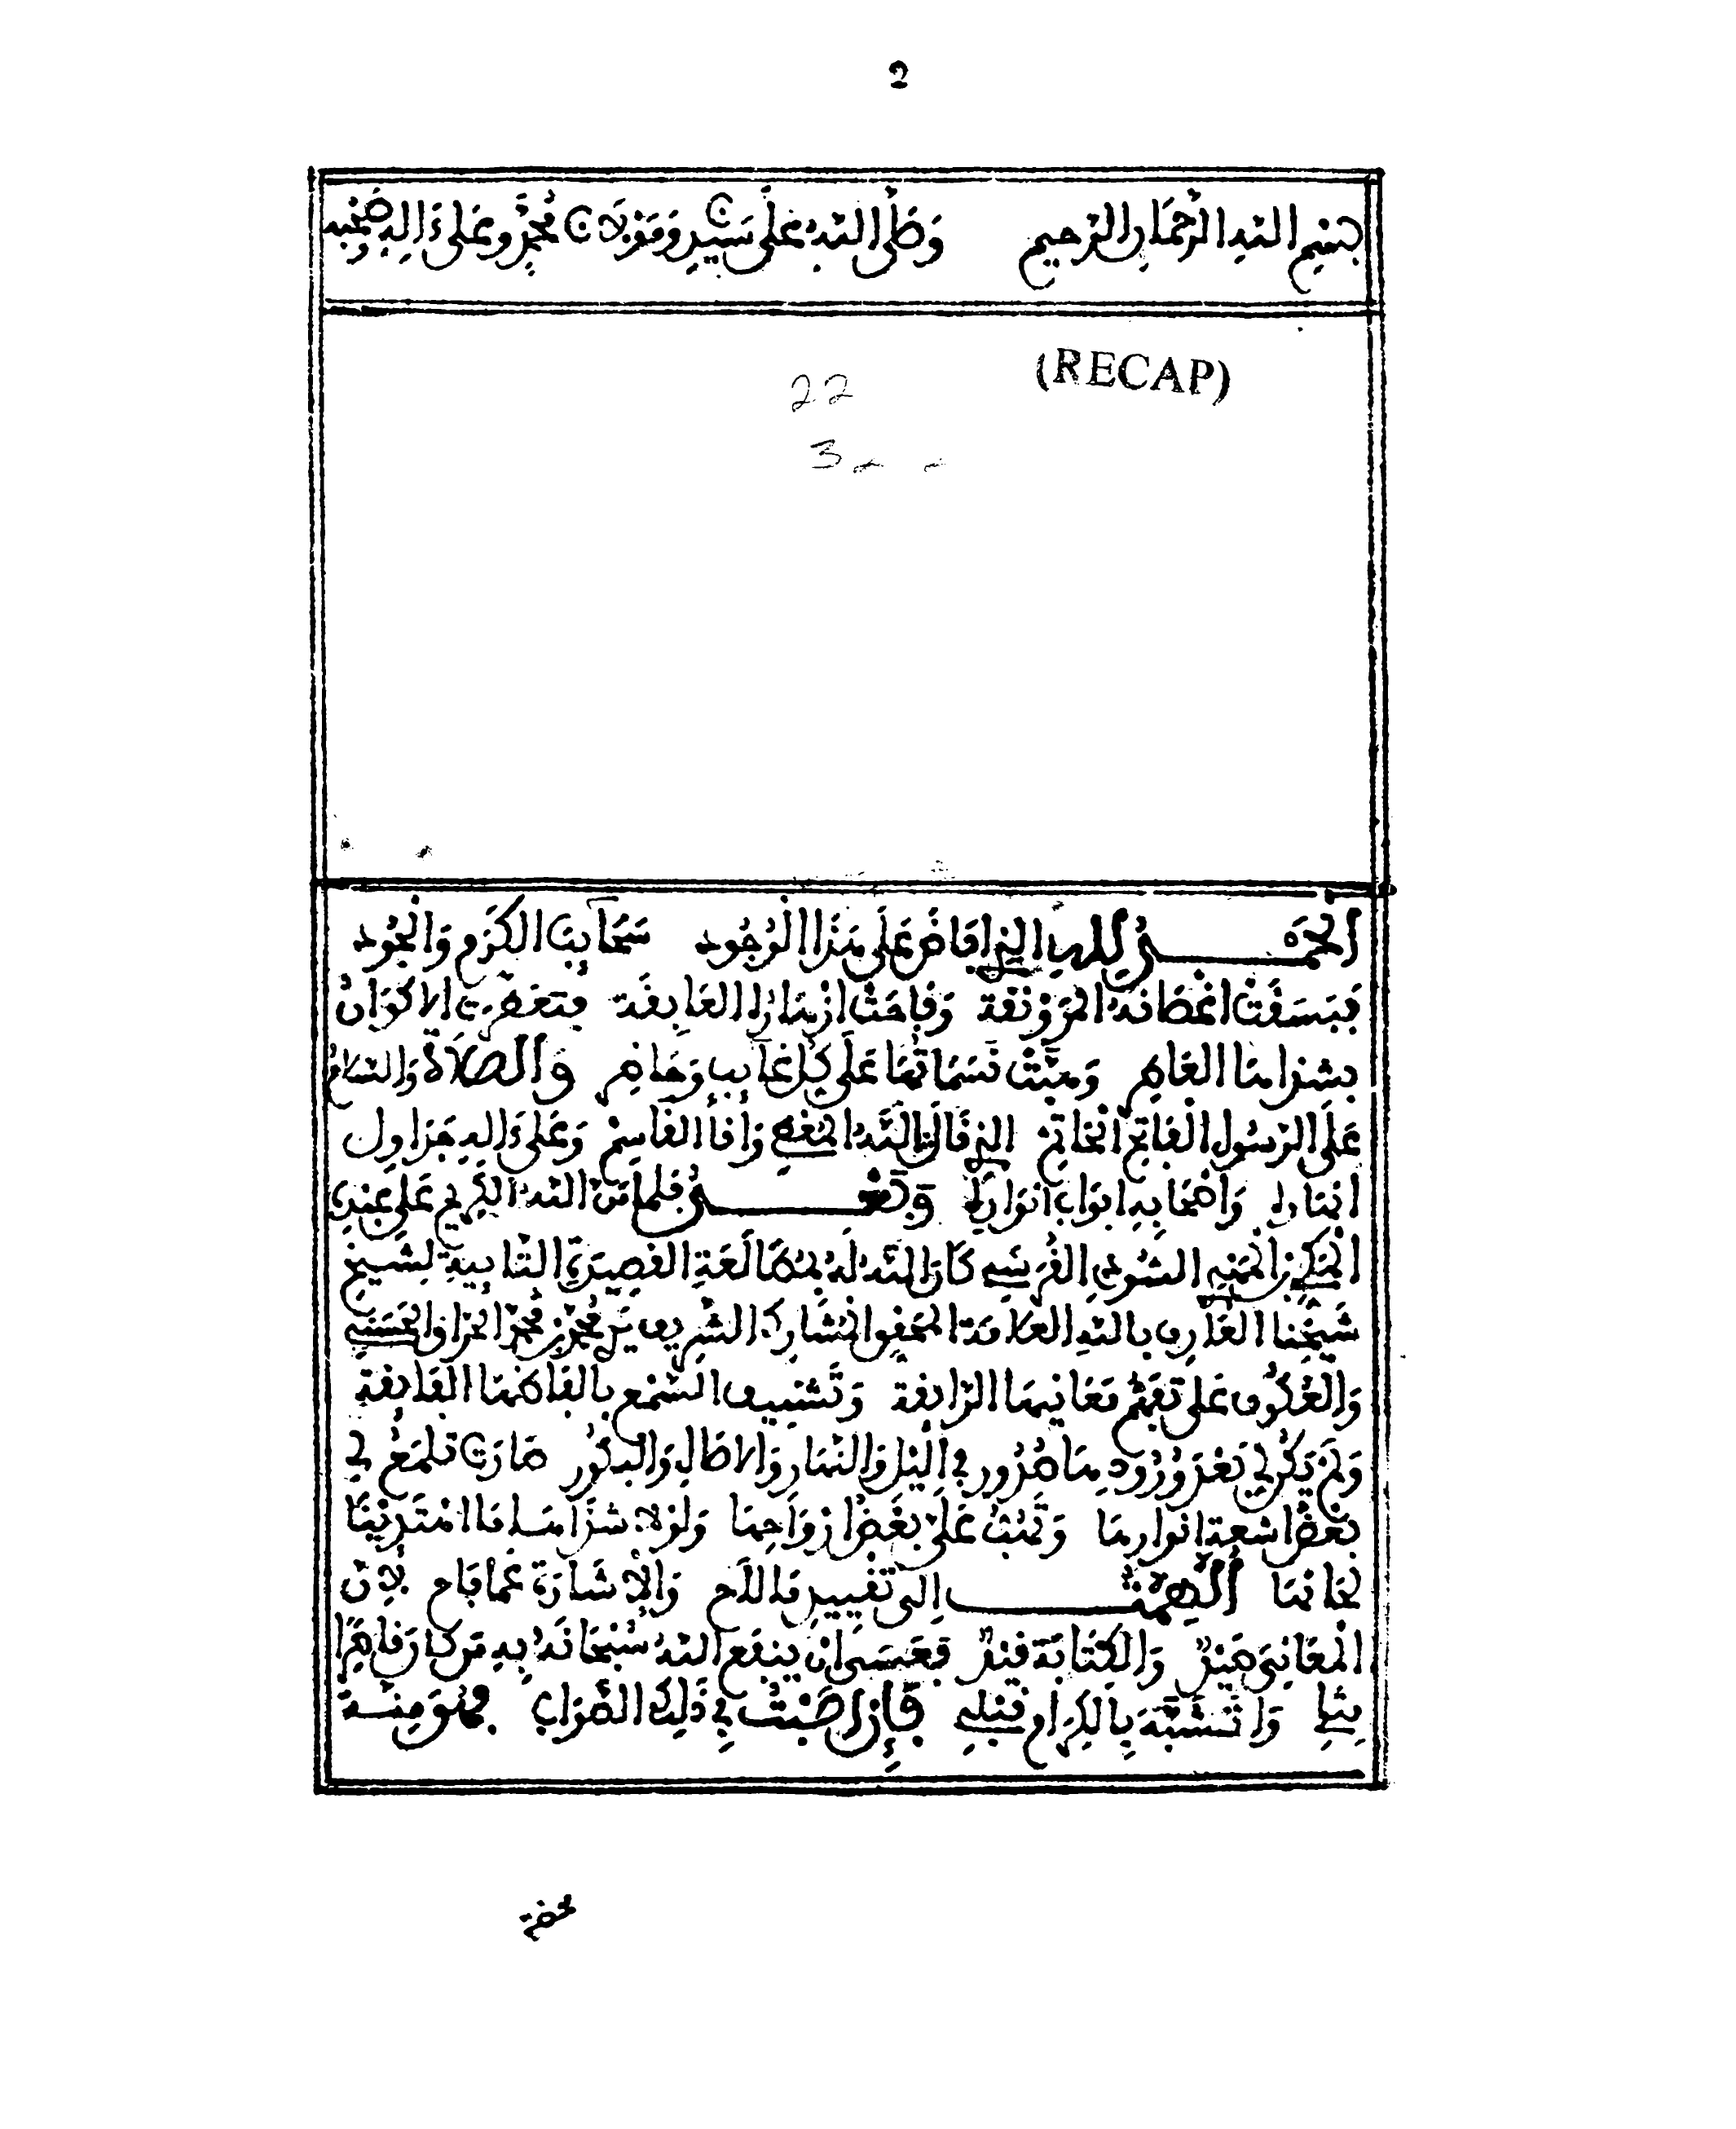 2
بسم الله الرحمان الرحيم وصلى الله على سيدنا ومولانا محمد وعلى ءاله وصحبه
(RECAP)
22
3
الحمد لله الذي أفاض على هذا الوجود سحايب الكرم والجود
فبسقت أغصانه المورقة وفاحت أزهاره العابقة فتعطرت الاكوان
بشذاها العاطر وهبت نسماتها على كل غايب وحاضر والصلاة والسلام
على الرسول الفاتح الخاتم الذي قال الله المعطي وأنا القاسم وعلى ءاله جداول
أنهاره وأصحابه أبواب أنواره وبعد فلما من الله الكريم على عبده
السوسي القريسي كان الله له بمطالعة القصيدة التايية لشيخ
شيخنا العارف بالله العلامة المحقق المشارك الشريف سيدي محمد بن محمد الحراق الحسني
والعكوف على تفهم معانيها الرايقة وتشنيف السمع بألفاظها الفايقة
ولم يكن لي بعد ورود مناها صدور في الليل والنهار والاصال والبكور صارت تلمع لي
بعض أشعة أنوارها وتهب علي بعض أرواحها ولولا شذاها ما اهتدينا
لحانها ألهمت إلى تقييد ما لاح والاشارة عما فاح لأن
المعاني صيد والكتابة قيد فعسى أن ينفع الله سبحانه به من كان قاصرا
مثلي وأتشبه بالكرام قبلي فإن أصبت في ذلك الصواب فهو منة
محضة